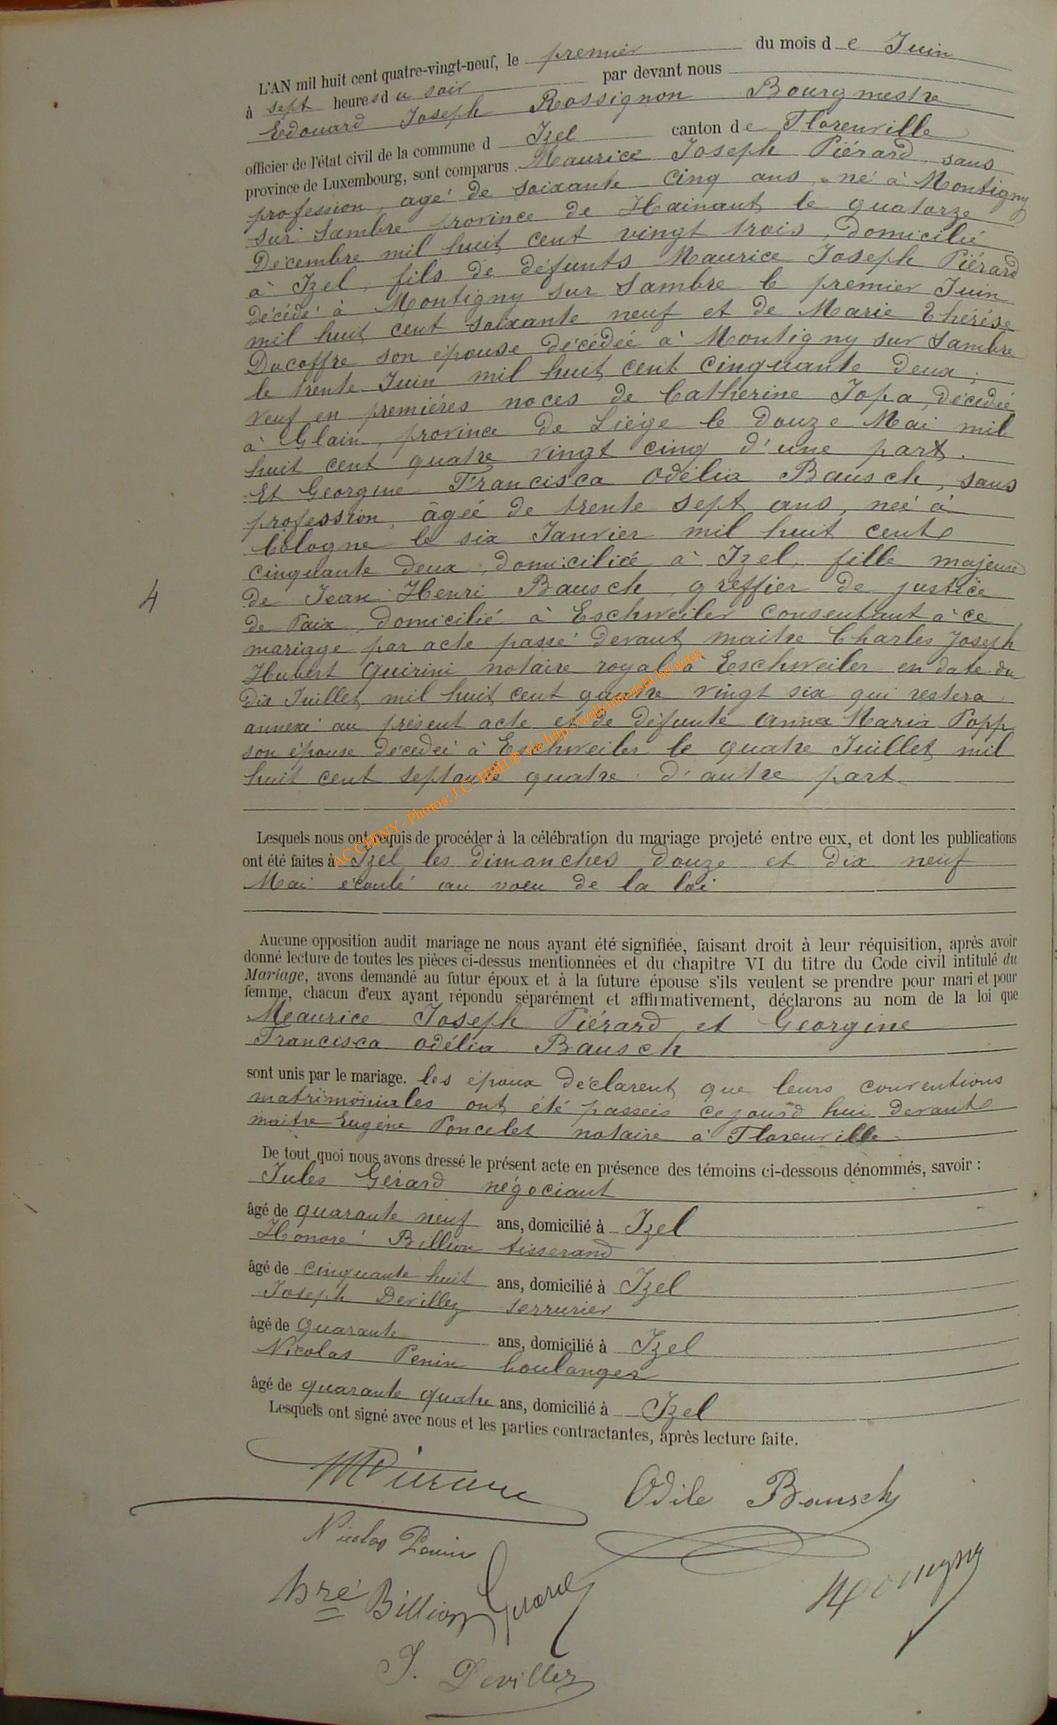 L'AN mil huit cent quatre-vingt-neuf, le premier du mois de Juin
à sept heures du soir par devant nous
Edouard Joseph Rossignon Bourgmestre
officier de l'état civil de la commune d Izel canton de Florenville
province de Luxembourg, sont comparus Maurice Joseph Piérard, sans
profession, agé de soixante cinq ans, né à Montigny
sur Sambre province de Hainaut le quatorze
Décembre mil huit cent vingt trois, domicilié
à Izel, fils de défunts Maurice Joseph Piérard
décédé à Montigny sur Sambre le premier Juin
mil huit cent soixante neuf et de Marie Thérèse
Ducoffre son épouse décédée à Montigny sur Sambre
le trente Juin mil huit cent cinquante deux;
veuf en premières noces de Catherine Jopa, décédée
à Glain, province de Liége le douze Mai mil
huit cent quatre vingt cinq d'une part.
Et Georgine Francisca Odélia Bausch, sans
profession, âgée de trente sept ans, née à
Cologne le six Janvier mil huit cent
cinquante deux, domiciliée à Izel, fille majeure
de Jean Henri Bausch, greffier de justice
de Paix, domicilié à Eschweiler consentant à ce
mariage par acte passé devant maitre Charles Joseph
Hubert Quirini notaire royal à Eschweiler en date du
dix Juillet mil huit cent quatre vingt six qui restera
annexé au présent acte et de défunte Anna Maria Popp
son épouse décédée à Eschweiler le quatre Juillet mil
huit cent septante quatre d'autre part.
4
Lesquels nous ont requis de procéder à la célébration du mariage projeté entre eux, et dont les publications
ont été faites à Izel les dimanches douze et dix neuf
Mai écoulé au voeu de la loi
Aucune opposition audit mariage ne nous ayant été signifiée, faisant droit à leur réquisition, après avoir
donné lecture de toutes les pièces ci-dessus mentionnées et du chapitre VI du titre du Code civil intitulé du
Mariage, avons demandé au futur époux et à la future épouse s'ils veulent se prendre pour mari et pour
femme, chacun d'eux ayant répondu séparément et affirmativement, déclarons au nom de la loi que
Maurice Joseph Piérard et Georgine
Francisca Odélia Bausch
sont unis par le mariage. les époux déclarent que leurs conventions
matrimoniales ont été passées cejourd'hui devant
maitre Eugène Poncelet notaire à Florenville.
De tout quoi nous avons dressé le présent acte en présence des témoins ci-dessous dénommés, savoir :
Jules Gérard négociant
âgé de quarante neuf ans, domicilié à Izel
Honoré Billion tisserand
âgé de cinquante huit ans, domicilié à Izel
Joseph Devillez serrurier
âgé de quarante ans, domicilié à Izel
Nicolas Penin boulanger
âgé de quarante quatre ans, domicilié à Izel
Lesquels ont signé avec nous et les parties contractantes, après lecture faite.
MPierard
Odile Bausch
Nicolas Penin
hré Billion Gérard
J. Devillez